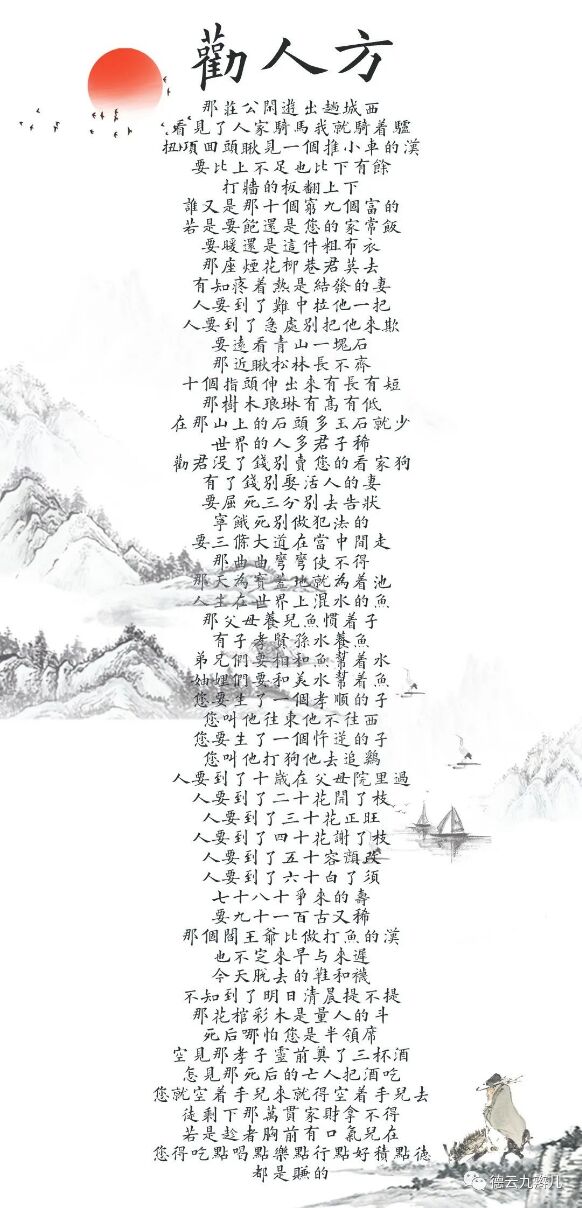 勸人方
那莊公閑遊出趟城西
看見了人家騎馬我就騎着驢
扭項回頭瞅見一個推小車的漢
要比上不足也比下有餘
打牆的板翻上下
誰又是那十個窮九個富的
若是要飽還是您的家常飯
要暖還是這件粗布衣
那座煙花柳巷君莫去
有知疼着熱是結發的妻
人要到了難中拉他一把
人要到了急處別把他來欺
要遠看青山一塊石
那近瞅松林長不齊
十個指頭伸出來有長有短
那樹木琅琳有高有低
在那山上的石頭多玉石就少
世界的人多君子稀
勸君沒了錢別賣您的看家狗
有了錢別娶活人的妻
要屈死三分別去告狀
寧餓死別做犯法的
要三條大道在當中間走
那曲曲彎彎使不得
那天為寶蓋地就為着池
人生在世界上混水的魚
那父母養兒魚慣着子
有子孝賢孫水養魚
弟兄們要相和魚幫着水
妯娌們要和美水幫着魚
您要生了一個孝順的子
您叫他往東他不往西
您要生了一個忤逆的子
您叫他打狗他去追鷄
人要到了十歲在父母院里過
人要到了二十花開了枝
人要到了三十花正旺
人要到了四十花謝了枝
人要到了五十容顏改
人要到了六十白了須
七十八十爭來的壽
要九十一百古又稀
那個閻王爺比做打魚的漢
也不定來早与來遲
今天脫去的鞋和襪
不知到了明日清晨提不提
那花棺彩木是量人的斗
死后哪怕您是半領席
空見那孝子靈前奠了三杯酒
怎見那死后的亡人把酒吃
您就空着手兒來就得空着手兒去
徒剩下那萬貫家財拿不得
若是趁者胸前有口氣兒在
您得吃點喝點樂點行點好積點德
都是賺的
德云九霄儿